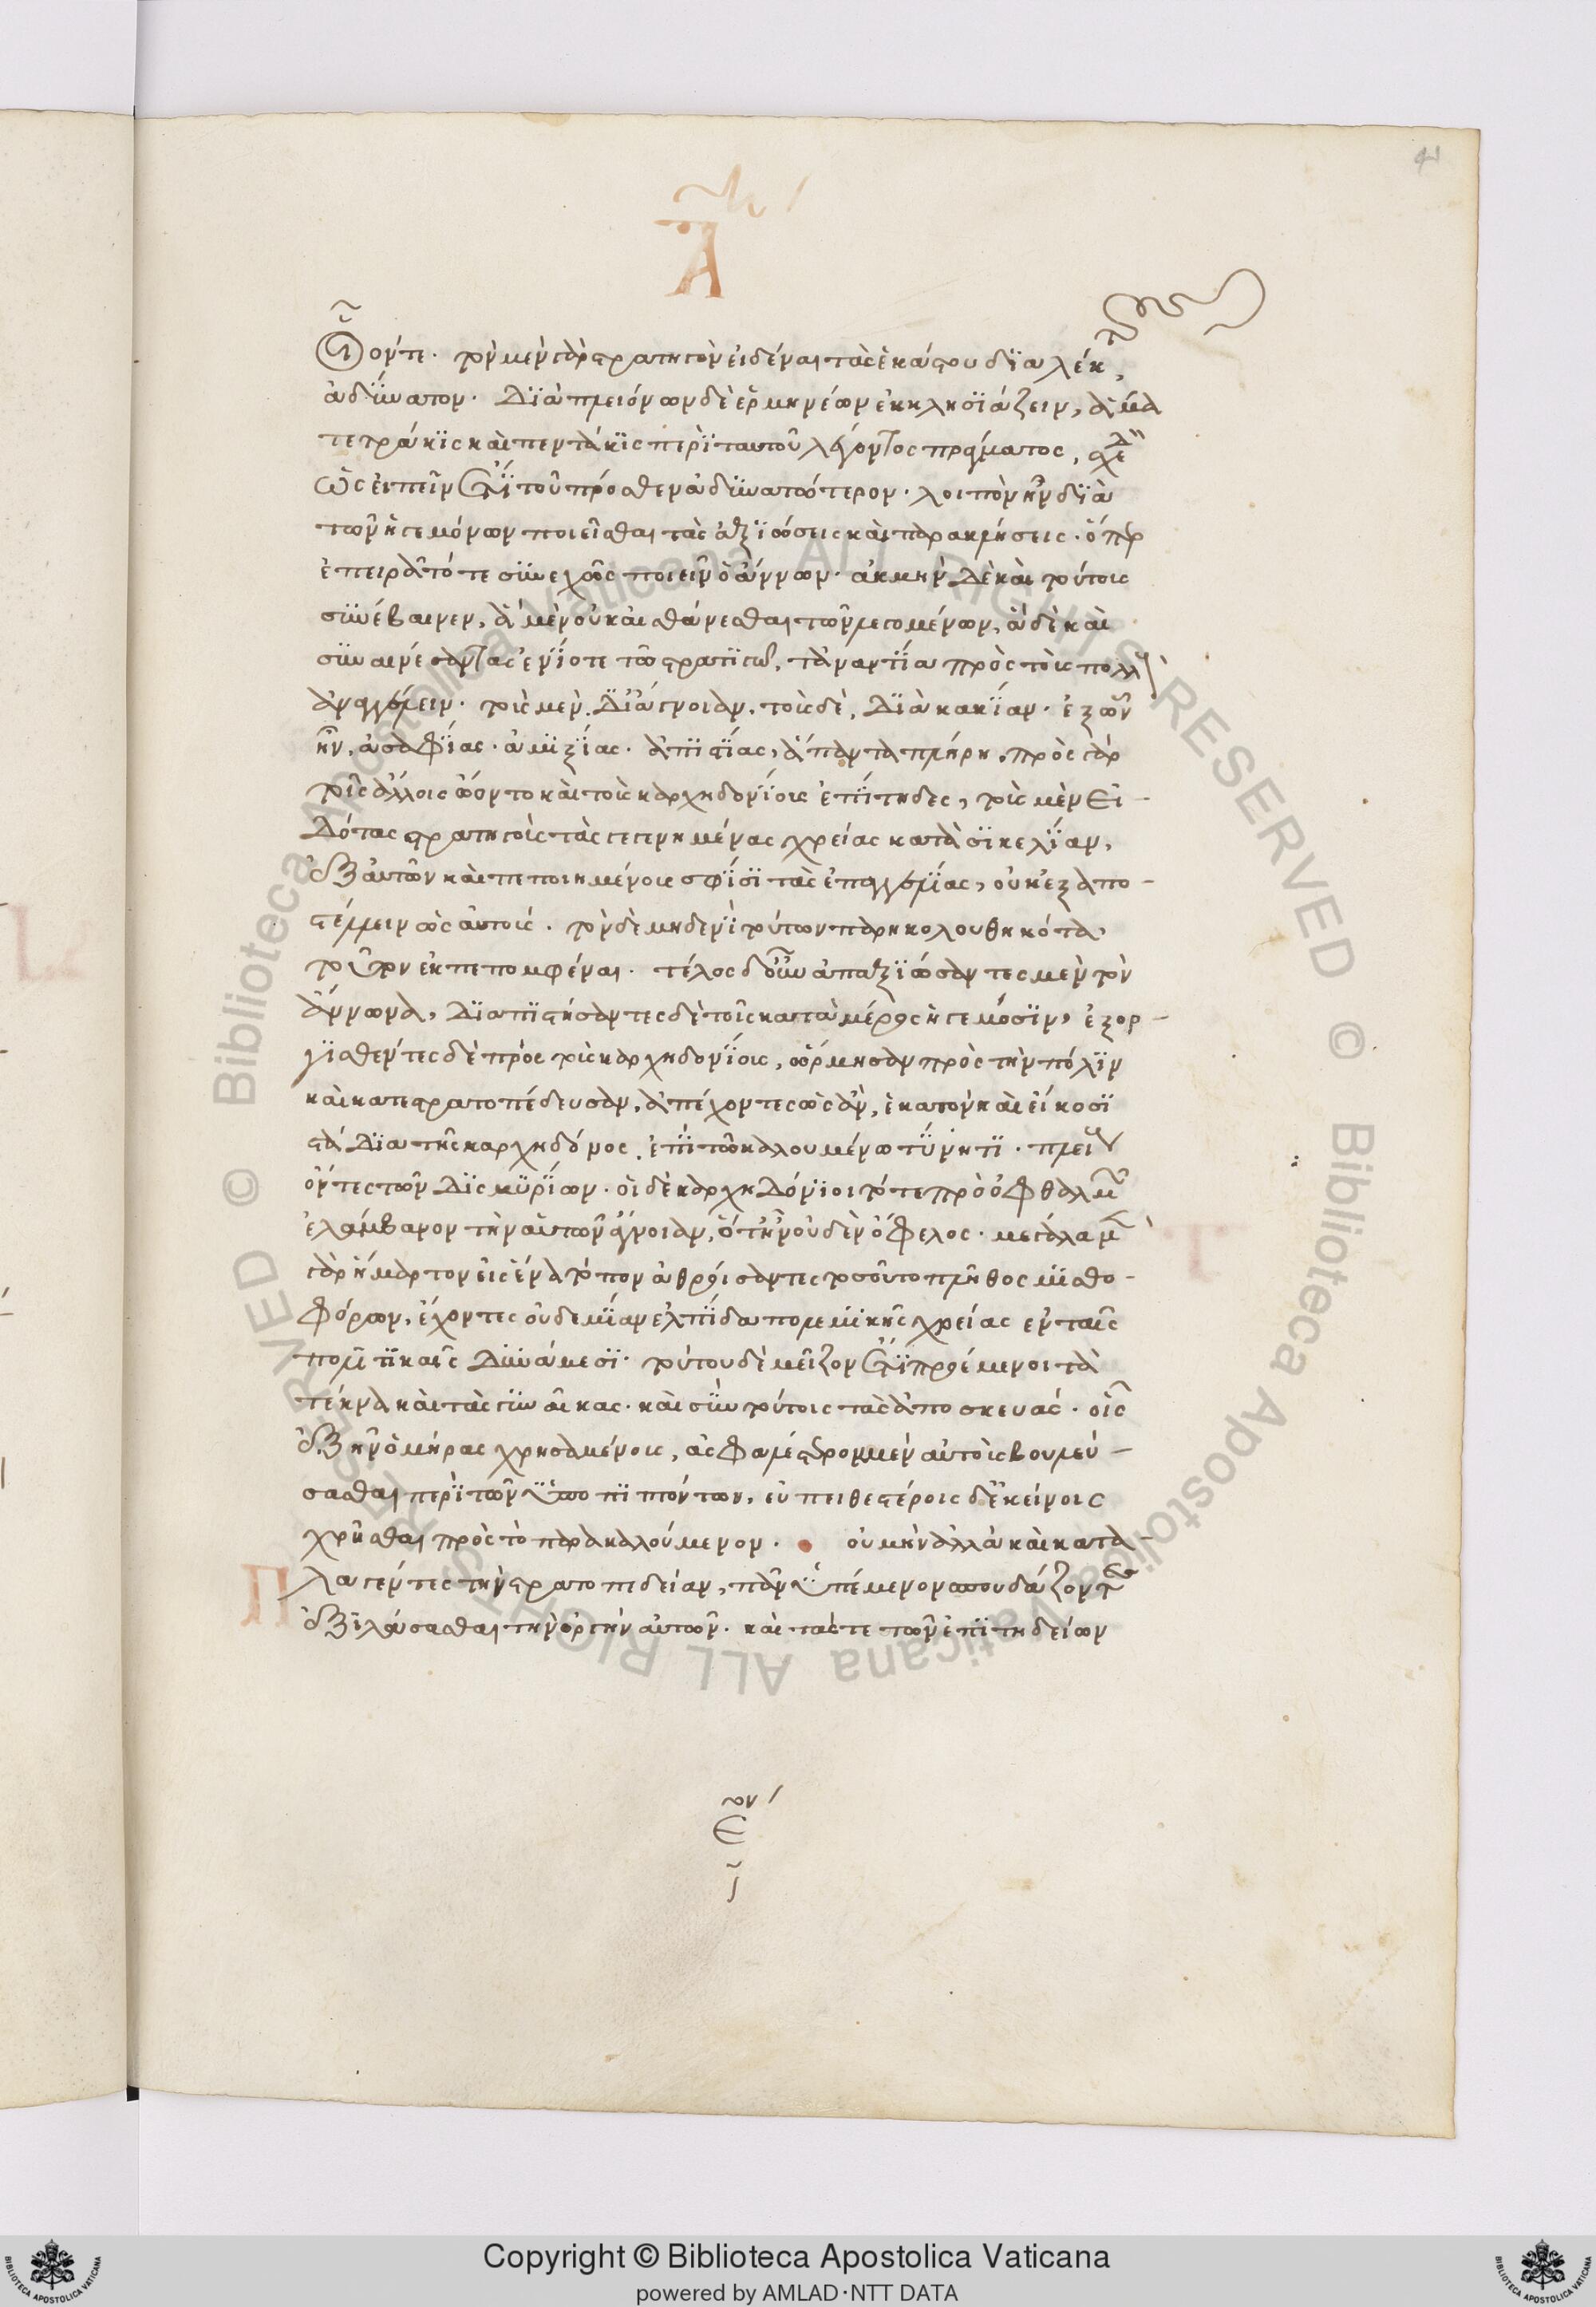 41
Α
οντε. τὸν μὲν γὰρ στρατηγὸν εἰδέναι τὰς ἑκάστου διαλέκτους
ἀδύνατον. διὰ πλειόνων δὲ ἑρμηνέων ἐκκλησιάζειν, ἅμα
τετράκις καὶ πεντάκις περὶ ταυτοῦ λέγοντος πράγματος, σχεδὸν
ὡς εἰπεῖν ἔτι τοῦ πρόσθεν ἀδυνατώτερον. λοιπὸν ἦν διὰ
τῶν ἡγεμόνων ποιεῖσθαι τὰς ἀξιώσεις καὶ παρακλήσεις. ὅπερ
ἐπειρᾶτο τότε συνεχῶς ποιεῖν ὁ ἅννων. ἀκμὴν δὲ καὶ τούτους
συνέβαινεν, ἃ μὲν οὐκ αἰσθάνεσθαι τῶν λεγομένων, ἃ δὲ καὶ
συναινέσαντας ἐνίοτε τῶ στρατηγῶ, τἀναντία πρὸς τοὺς πολλοὺς
ἀναγγέλλειν. τοὺς μὲν, δι' ἄγνοιαν, τοὺς δὲ, διὰ κακίαν. ἐξ ὧν
ἦν, ἀσαφείας. ἀμιξίας. ἀπιστίας, ἅπαντα πλήρη. πρὸς γὰρ
τοῖς ἄλλοις ὤοντο καὶ τοὺς καρχηδονίους ἐπίτηδες, τοὺς μὲν εἰ-
δότας στρατηγοὺς τὰς γεγενημένας χρείας κατὰ σικελίαν,
ὑπ' αὐτῶν καὶ πεποιημένους σφίσι τὰς ἐπαγγελίας, οὐκ ἐξαπο-
στέλλειν ὡς αὐτούς. τὸν δὲ μηδενὶ τούτων παρηκολουθηκότα,
τοῦτον ἐκπεπομφέναι. τέλος δ' οὖν ἀπαξιώσαντες μὲν τὸν
ἄννωνα, διαπιστήσαντες δὲ τοῖς κατὰ μέρος ἡγεμόσιν, ἐξορ-
γισθέντες δὲ πρὸς τοὺς καρχηδονίους, ὥρμησαν πρὸς τὴν πόλιν
καὶ κατεστρατοπέδευσαν, ἀπέχοντες ὡς ἂν, ἑκατὸν καὶ εἴκοσι
στάδια τῆς καρχηδόνος, ἐπὶ τῶ καλουμένω τύνητι. πλείους
ὄντες τῶν δισμυρίων. οἱ δὲ καρχηδόνιοι τότε πρὸ ὀφθαλμῶν
ἐλάμβανον τὴν αὑτῶν ἄνοιαν, ὅτ' ἦν οὐδὲν ὄφελος. μεγάλα μὲν
γὰρ ἥμαρτον εἰς ἕνα τόπον ἀθροίσαντες τοσοῦτο πλῆθος μισθο-
φόρων, ἔχοντες οὐδεμίαν ἐλπίδα πολεμικῆς χρείας ἐν ταῖς
πολιτικαῖς δυνάμεσι. τούτου δὲ μεῖζον ἔτι προέμενοι τὰ
τέκνα καὶ τὰς γυναῖκας. καὶ σὺν τούτοις τὰς ἀποσκευάς. οἷς
ἐξῆν ὁμήροις χρησαμένους, ἀσφαλέστερον μὲν αὐτοὺς βουλεύ-
σασθαι περὶ τῶν ὑποπιπτόντων, εὐπειθεστέροις δ' ἐκείνοις
χρῆσθαι πρὸς τὸ παρακαλούμενον. οὐ μὴν ἀλλὰ καὶ κατα-
Π
πλαγέντες τὴν στρατοπεδείαν, πᾶν ὑπέμενον σπουδάζοντες
ἐξιλάσασθαι τὴν ὀργὴν αὐτῶν. καὶ τάς τε τῶν ἐπιτηδείων
Copyright © Biblioteca Apostolica Vaticana
powered by AMLAD·NTT DATA